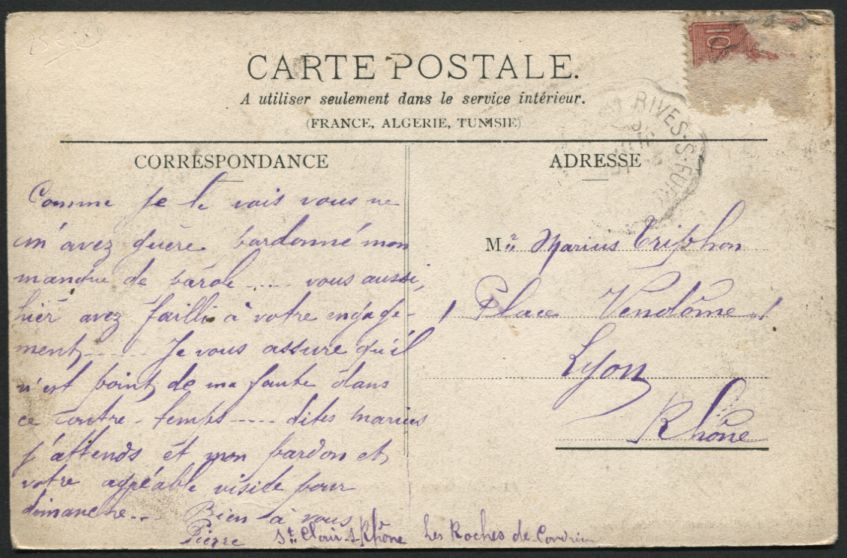 10
CARTE POSTALE.
A utiliser seulement dans le service intérieur.
(FRANCE, ALGERIE, TUNISIE)
RIVES-S-FUR
CORRESPONDANCE
ADRESSE
Comme je le vois vous ne
m'avez guère pardonné mon
manque de parole .... vous aussi,
hier avez failli à votre engage-
ment, .... Je vous assure qu'il
n'est point de ma faute dans
ce contre-temps .... dites Marius
j'attends et mon pardon et,
votre agréable visite pour
dimanche...
Bien à vous
Pierre St Clair-s-Rhône Les Roches de Condrieu
Mr Marius Triphon
1 Place Vendôme 1
Lyon
Rhône